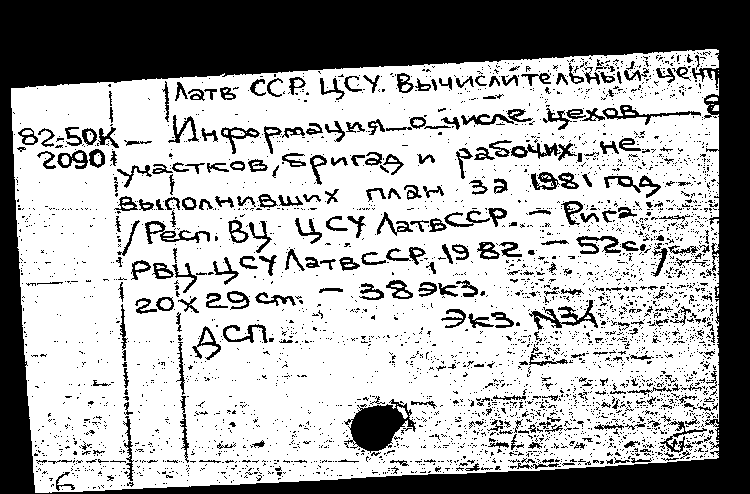 Латв ССР. ЦСУ. Вычислительный цент
82-50К — Информация о числе цехов,
2090 участков, бригад и рабочих, не
выполнивших план за 1981 год
/ Респ. ВЦ ЦСУ ЛатвССР. - Рига:
РВЦ ЦСУ ЛатвССР, 1982. - 52с.;
20х29cm. - 38экз.
ДСП. Экз. N34
6